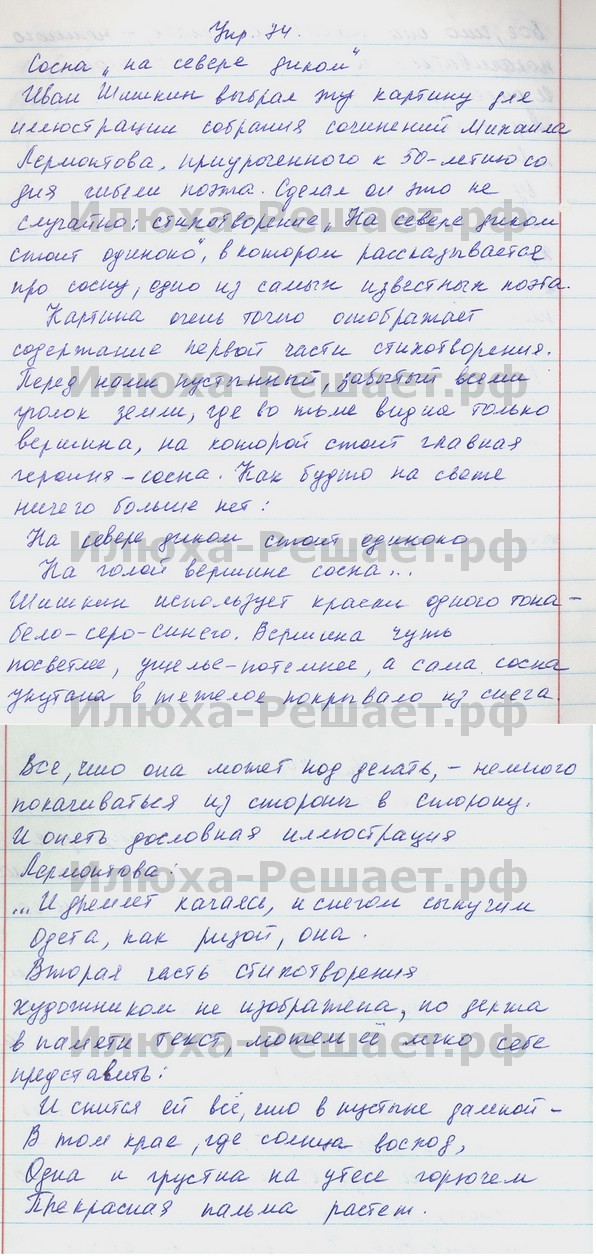 Упр. 74.
Сосна „на севере диком"
Иван Шишкин выбрал эту картину для
иллюстрации собрания сочинений Михаила
Лермонтова, приуроченного к 50-летию со
дня гибели поэта. Сделал он это не
случайно: стихотворение „На севере диком
стоит одиноко", в котором рассказывается
про сосну, одно из самых известных поэта.
Картина очень точно отображает
содержание первой части стихотворения.
Перед нами пустынный, забытый всеми
уголок земли, где во тьме видна только
вершина, на которой стоит главная
героиня - сосна. Как будто на свете
ничего больше нет:
На севере диком стоит одиноко
На голой вершине сосна...
Шишкин использует краски одного тона -
бело-серо-синего. Вершина чуть
посветлее, ущелье - потемнее, а сама сосна
укутана в тяжелое покрывало из снега.
Все, что она может под делать, - немного
покачиваться из стороны в сторону.
И опять дословная иллюстрация
Лермонтова:
...И дремлет качаясь, и снегом сыпучим
Одета, как ризой, она.
Вторая часть стихотворения
художником не изображена, но держа
в памяти текст, можем её легко себе
представить:
И снится ей всё, что в пустыне далекой -
В том крае, где солнца восход,
Одна и грустна на утесе горючем
Прекрасная пальма растет.
Илюха-Решает.рф
Илюха-Решает.рф
Илюха-Решает.рф
Илюха-Решает.рф
Илюха-Решает.рф
Илюха-Решает.рф
Илюха-Решает.рф